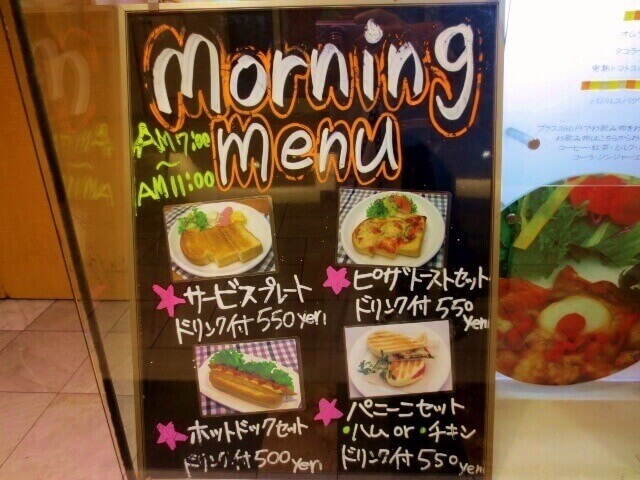 morning
menu
AM 7:00
~
AM 11:00
サービスプレート
ドリンク付 550 yen
ピザトーストセット
ドリンク付 550 yen
ホットドックセット
ドリンク付 500 yen
パニーニセット
・ハム or ・チキン
ドリンク付 550 yen